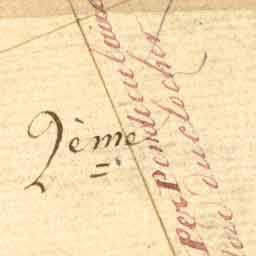 2ème
Perpendiculaire
du clocher